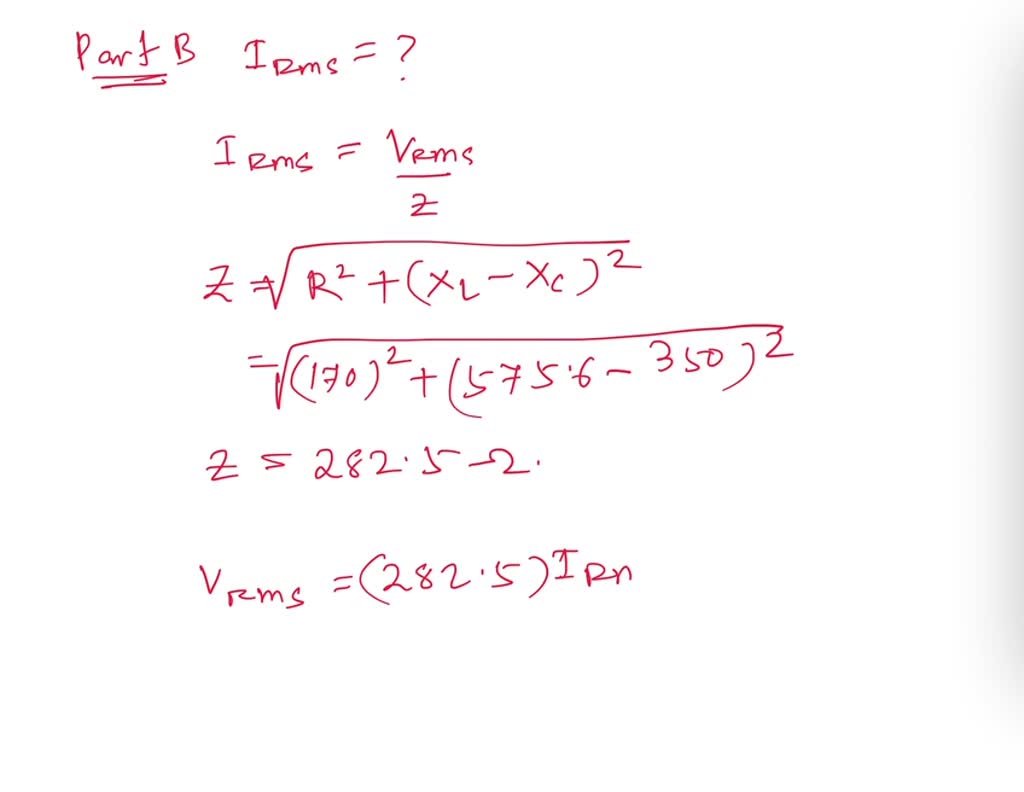 Part B IRms = ?
IRms = VRms / Z
Z = √R² + (XL - Xc)²
= √(170)² + (575.6 - 350)²
Z = 282.5 Ω.
VRms = (282.5) IRm